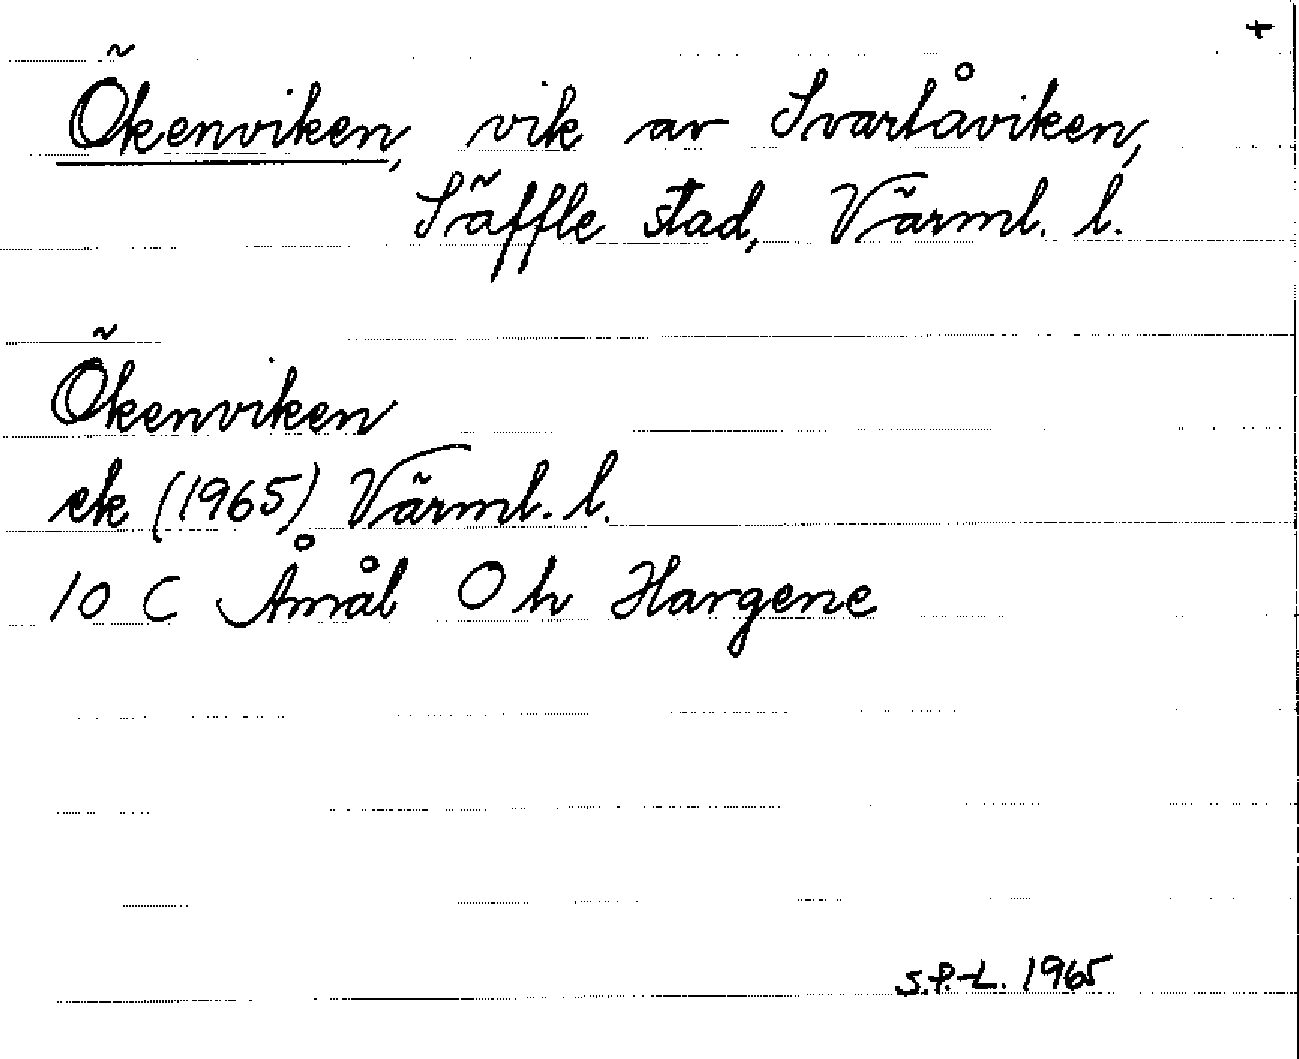 +
Ökenviken, vik av Svartåviken,
Säffle stad, Värml. l.
Ökenviken
ek (1965) Värml. l.
10 C Åmål Öh Hargene
S.P-L. 1965